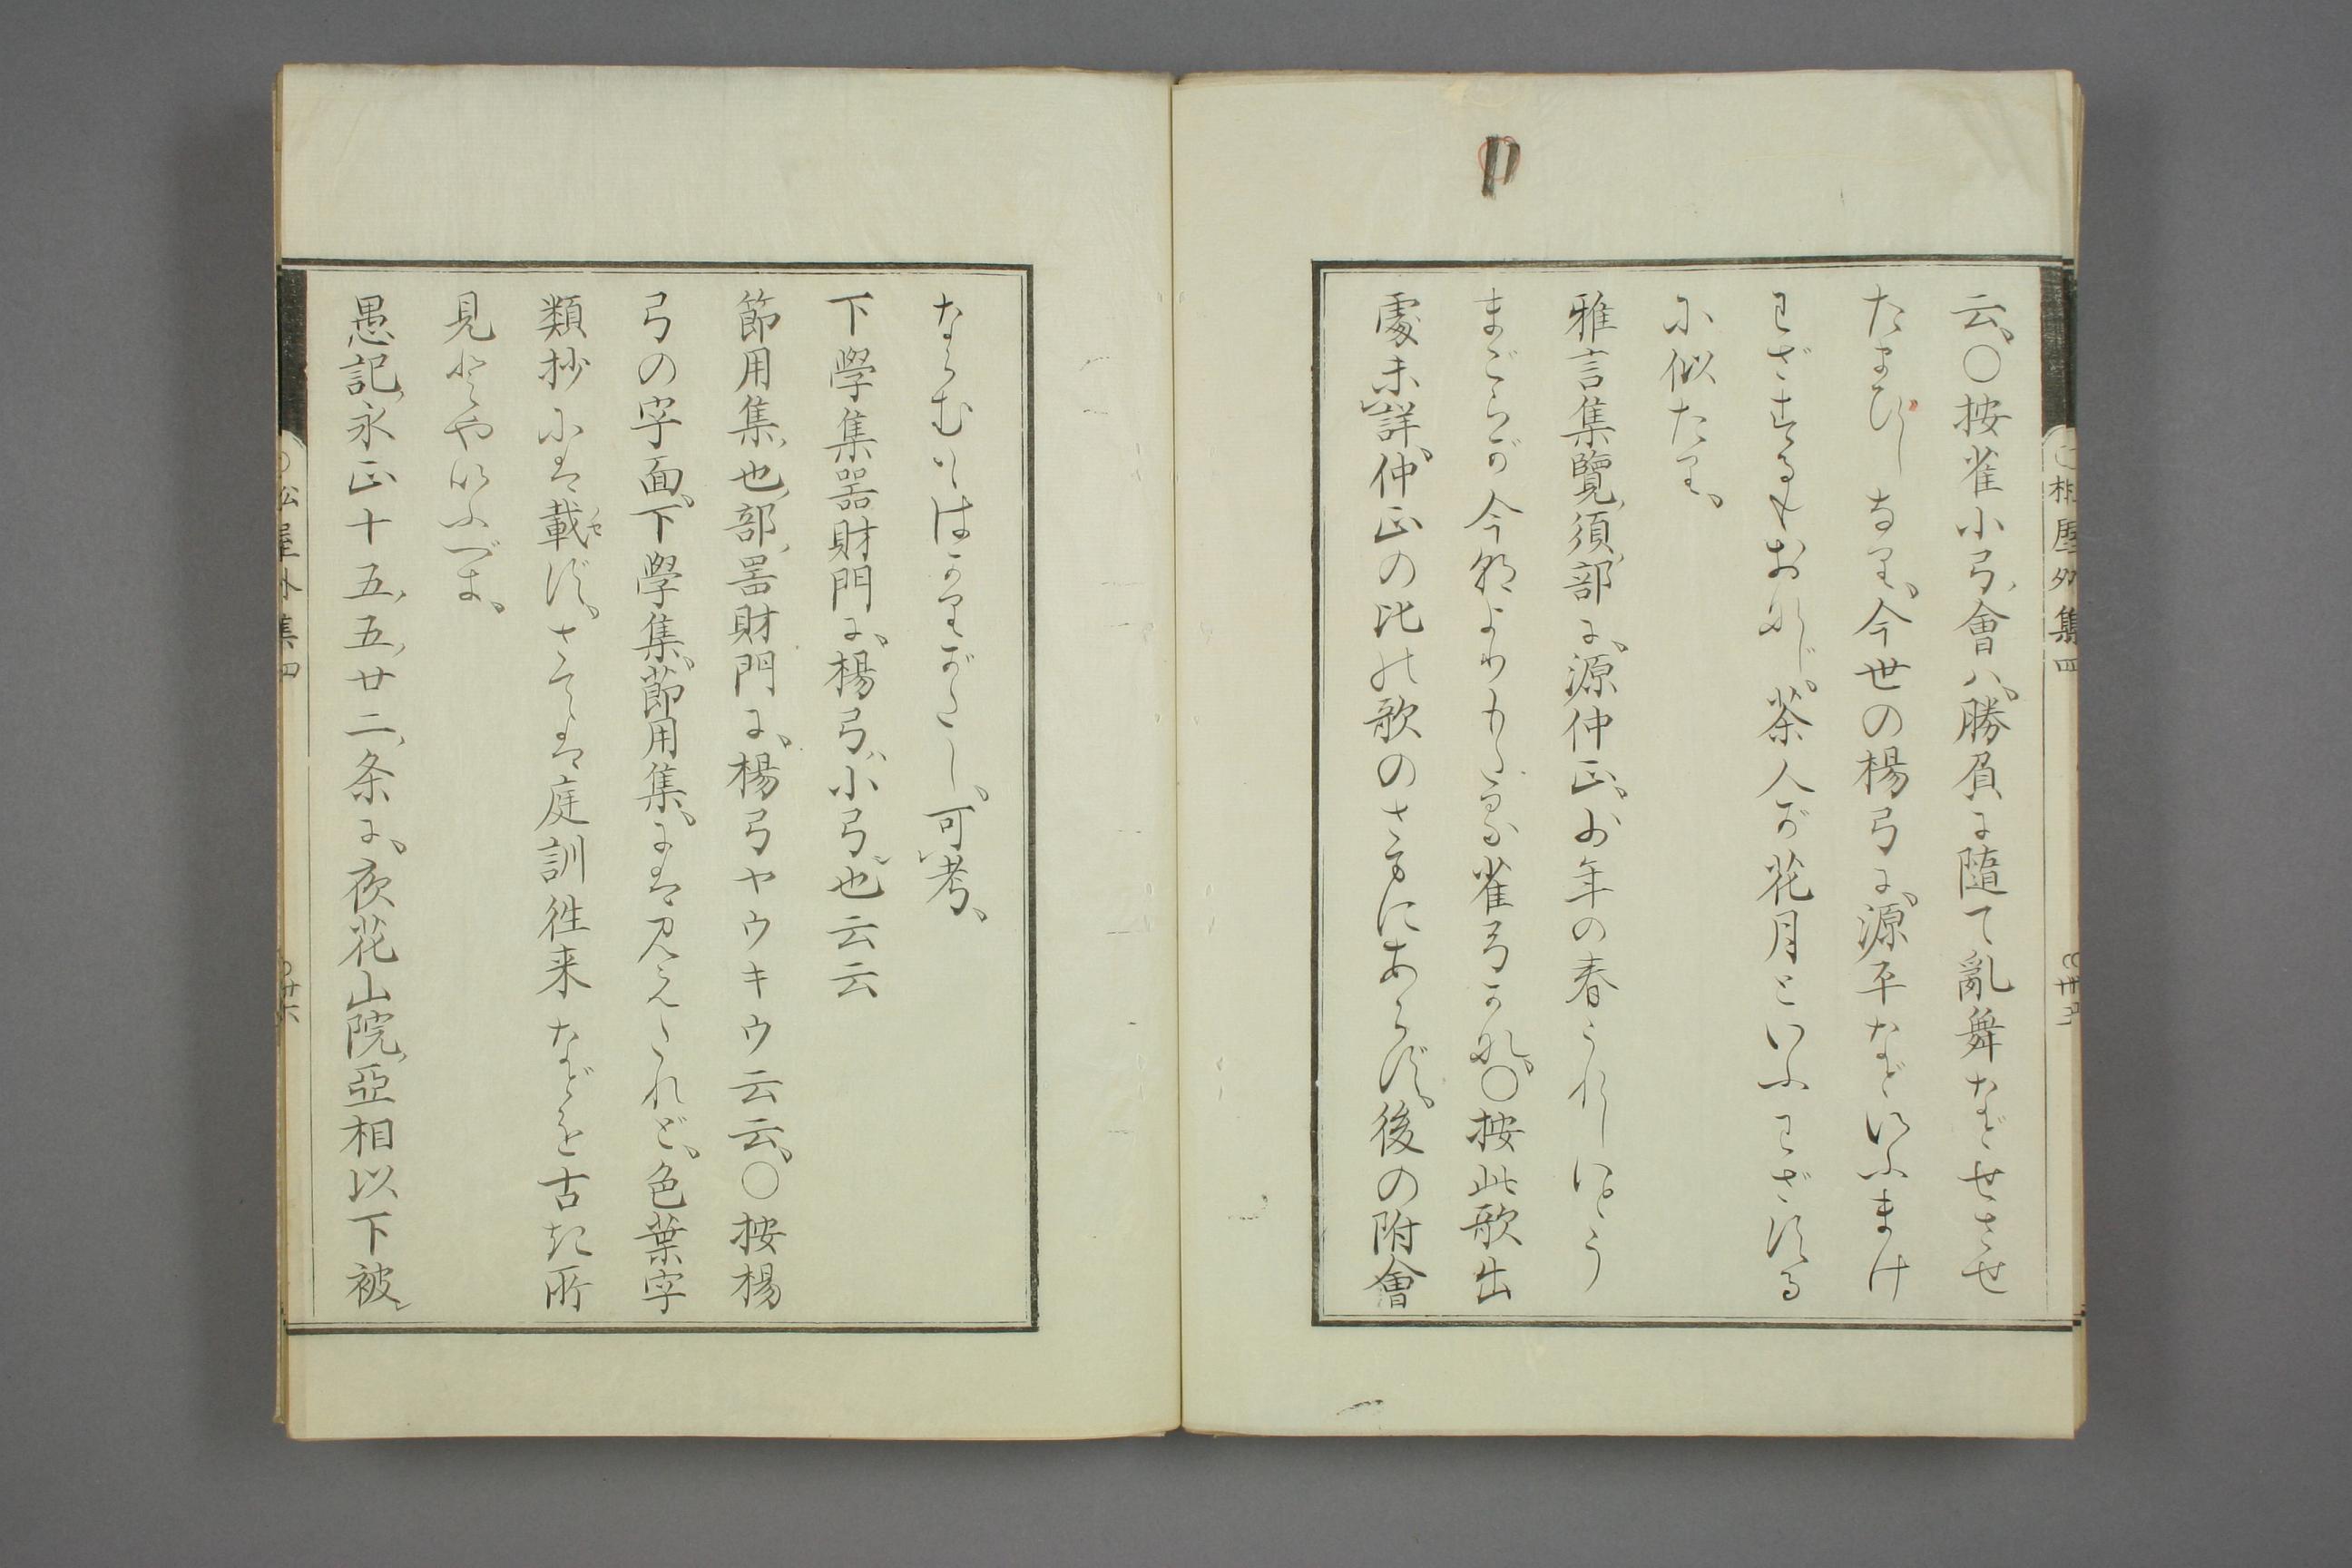 云、○按雀小弓會ハ、勝負に隨て亂舞などせさせ
たまひしなり、今世の楊弓に、源平などいふまけ
わざするもおなじ、茶人が花月といふわざする
に似たり、
雅言集覽、須部に、源仲正、が年の春うれしけにう
まごらが今朝よりもたる雀弓かな、○按此歌出
處未詳、仲正の比の歌のさまにあらず、後の附會
ならむもはかりがたし、可考、
下學集器財門に、楊弓、小弓也云云
節用集、也部、器財門に、楊弓ヤウキウ云云、○按楊
弓の字面、下學集、節用集、には見えたれど、色葉字
類抄には載ず、さては庭訓徃来などを古き所
見とやいふべき、
愚記、永正十五、五、廿二、条に、夜花山院、亞相以下被
松屋外集四
松屋外集四